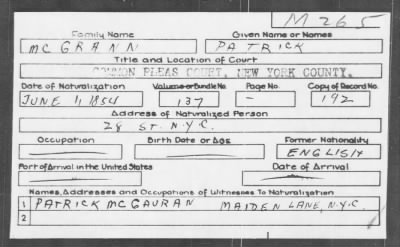 M 265
Family Name Given Name or Names
MC GRANN PATRICK
Title and Location of Court
COMMON PLEAS COURT, NEW YORK COUNTY.
Date of Naturalization Volume or Bundle No. Page No. Copy of Record No.
JUNE 1, 1854 137 - 192
Address of Naturalized Person
28 ST. N.Y.C.
Occupation Birth Date or Age Former Nationality
ENGLISH
Port of Arrival in the United States Date of Arrival
Names, Addresses and Occupations of Witnesses To Naturalization
1 PATRICK MC GAURAN MAIDEN LANE, N.Y.C.
2